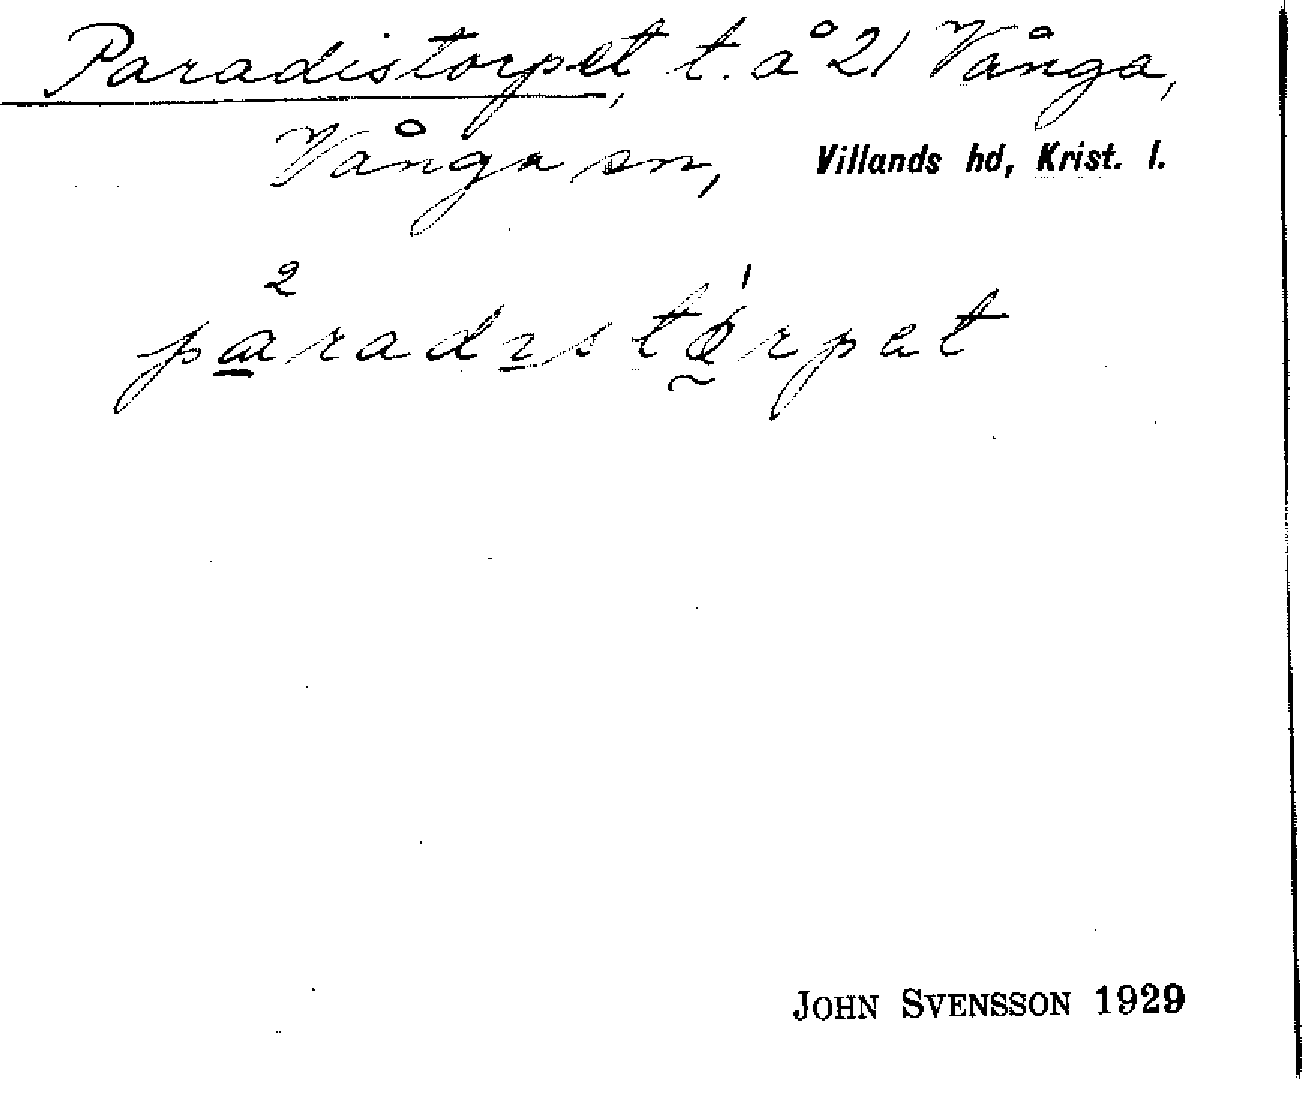 Paradistorpet, t. å 21 Vånga,
Vånga sn, Villands hd, Krist. l.
²paradıstǿ̰rpet
JOHN SVENSSON 1929